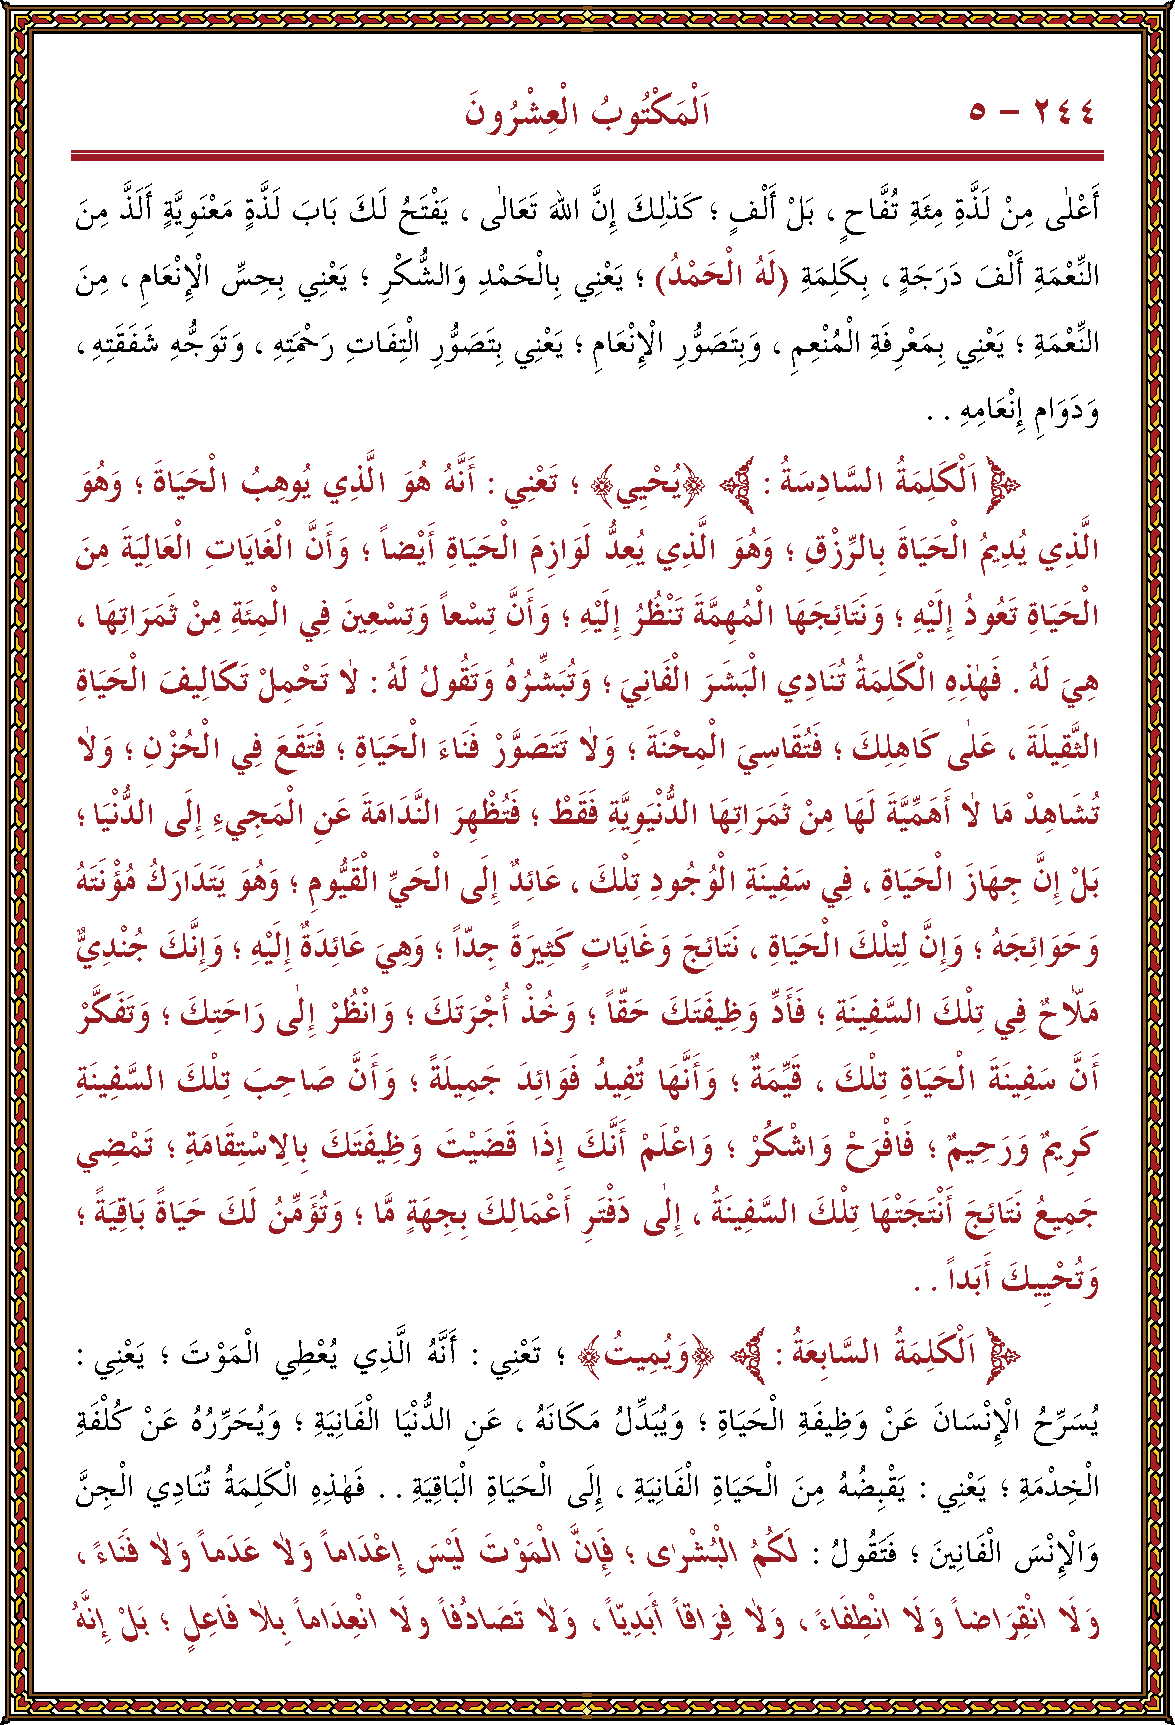 ٢٤٤ - ٥ اَلْمَكْتُوبُ الْعِشْرُونَ
أَعْلٰى مِنْ لَذَّةِ مِئَةِ تُفَّاحٍ ، بَلْ أَلْفٍ ؛ كَذٰلِكَ إِنَّ اللهَ تَعَالٰى ، يَفْتَحُ لَكَ بَابَ لَذَّةٍ مَعْنَوِيَّةٍ أَلَذَّ مِنَ
النِّعْمَةِ أَلْفَ دَرَجَةٍ ، بِكَلِمَةِ (لَهُ الْحَمْدُ) ؛ يَعْنِي بِالْحَمْدِ وَالشُّكْرِ ؛ يَعْنِي بِحِسِّ الْإِنْعَامِ ، مِنَ
النِّعْمَةِ ؛ يَعْنِي بِمَعْرِفَةِ الْمُنْعِمِ ، وَبِتَصَوُّرِ الْإِنْعَامِ ؛ يَعْنِي بِتَصَوُّرِ الْتِفَاتِ رَحْمَتِهِ ، وَتَوَجُّهِ شَفَقَتِهِ ،
وَدَوَامِ إِنْعَامِهِ . .
اَلْكَلِمَةُ السَّادِسَةُ : ﴿يُحْيِي﴾ ؛ تَعْنِي : أَنَّهُ هُوَ الَّذِي يُوهِبُ الْحَيَاةَ ؛ وَهُوَ
الَّذِي يُدِيمُ الْحَيَاةَ بِالرِّزْقِ ؛ وَهُوَ الَّذِي يُعِدُّ لَوَازِمَ الْحَيَاةِ أَيْضاً ؛ وَأَنَّ الْغَايَاتِ الْعَالِيَةَ مِنَ
الْحَيَاةِ تَعُودُ إِلَيْهِ ؛ وَنَتَائِجَهَا الْمُهِمَّةَ تَنْظُرُ إِلَيْهِ ؛ وَأَنَّ تِسْعاً وَتِسْعِينَ فِي الْمِئَةِ مِنْ ثَمَرَاتِهَا ،
هِيَ لَهُ . فَهٰذِهِ الْكَلِمَةُ تُنَادِي الْبَشَرَ الْفَانِيَ ؛ وَتُبَشِّرُهُ وَتَقُولُ لَهُ : لاٰ تَحْمِلْ تَكَالِيفَ الْحَيَاةِ
الثَّقِيلَةَ ، عَلٰى كَاهِلِكَ ؛ فَتُقَاسِيَ الْمِحْنَةَ ؛ وَلاٰ تَتَصَوَّرْ فَنَاءَ الْحَيَاةِ ؛ فَتَقَعَ فِي الْحُزْنِ ؛ وَلاٰ
تُشَاهِدْ مَا لاٰ أَهَمِّيَّةَ لَهَا مِنْ ثَمَرَاتِهَا الدُّنْيَوِيَّةِ فَقَطْ ؛ فَتُظْهِرَ النَّدَامَةَ عَنِ الْمَجِيءِ إِلَى الدُّنْيَا ؛
بَلْ إِنَّ جِهَازَ الْحَيَاةِ ، فِي سَفِينَةِ الْوُجُودِ تِلْكَ ، عَائِدٌ إِلَى الْحَيِّ الْقَيُّومِ ؛ وَهُوَ يَتَدَارَكُ مُؤْنَتَهُ
وَحَوَائِجَهُ ؛ وَإِنَّ لِتِلْكَ الْحَيَاةِ ، نَتَائِجَ وَغَايَاتٍ كَثِيرَةً جِدّاً ؛ وَهِيَ عَائِدَةٌ إِلَيْهِ ؛ وَإِنَّكَ جُنْدِيٌّ
مَلاّٰحٌ فِي تِلْكَ السَّفِينَةِ ؛ فَأَدِّ وَظِيفَتَكَ حَقّاً ؛ وَخُذْ أُجْرَتَكَ ؛ وَانْظُرْ إِلٰى رَاحَتِكَ ؛ وَتَفَكَّرْ
أَنَّ سَفِينَةَ الْحَيَاةِ تِلْكَ ، قَيِّمَةٌ ؛ وَأَنَّهَا تُفِيدُ فَوَائِدَ جَمِيلَةً ؛ وَأَنَّ صَاحِبَ تِلْكَ السَّفِينَةِ
كَرِيمٌ وَرَحِيمٌ ؛ فَافْرَحْ وَاشْكُرْ ؛ وَاعْلَمْ أَنَّكَ إِذَا قَضَيْتَ وَظِيفَتَكَ بِالِاسْتِقَامَةِ ؛ تَمْضِي
جَمِيعُ نَتَائِجِ أَنْتَجَتْهَا تِلْكَ السَّفِينَةُ ، إِلٰى دَفْتَرِ أَعْمَالِكَ بِجِهَةٍ مَّا ؛ وَتُؤَمِّنُ لَكَ حَيَاةً بَاقِيَةً ؛
وَتُحْيِيكَ أَبَداً . .
اَلْكَلِمَةُ السَّابِعَةُ : ﴿وَيُمِيتُ﴾ ؛ تَعْنِي : أَنَّهُ الَّذِي يُعْطِي الْمَوْتَ ؛ يَعْنِي :
يُسَرِّحُ الْإِنْسَانَ عَنْ وَظِيفَةِ الْحَيَاةِ ؛ وَيُبَدِّلُ مَكَانَهُ ، عَنِ الدُّنْيَا الْفَانِيَةِ ؛ وَيُحَرِّرُهُ عَنْ كُلْفَةِ
الْخِدْمَةِ ؛ يَعْنِي : يَقْبِضُهُ مِنَ الْحَيَاةِ الْفَانِيَةِ ، إِلَى الْحَيَاةِ الْبَاقِيَةِ . . فَهٰذِهِ الْكَلِمَةُ تُنَادِي الْجِنَّ
وَالْإِنْسَ الْفَانِينَ ؛ فَتَقُولُ : لَكُمُ الْبُشْرٰى ؛ فَإِنَّ الْمَوْتَ لَيْسَ إِعْدَاماً وَلاٰ عَدَماً وَلاٰ فَنَاءً ،
وَلَا انْقِرَاضاً وَلَا انْطِفَاءً ، وَلاٰ فِرَاقاً أَبَدِيّاً ، وَلاٰ تَصَادُفاً وَلَا انْعِدَاماً بِلاٰ فَاعِلٍ ؛ بَلْ إِنَّهُ